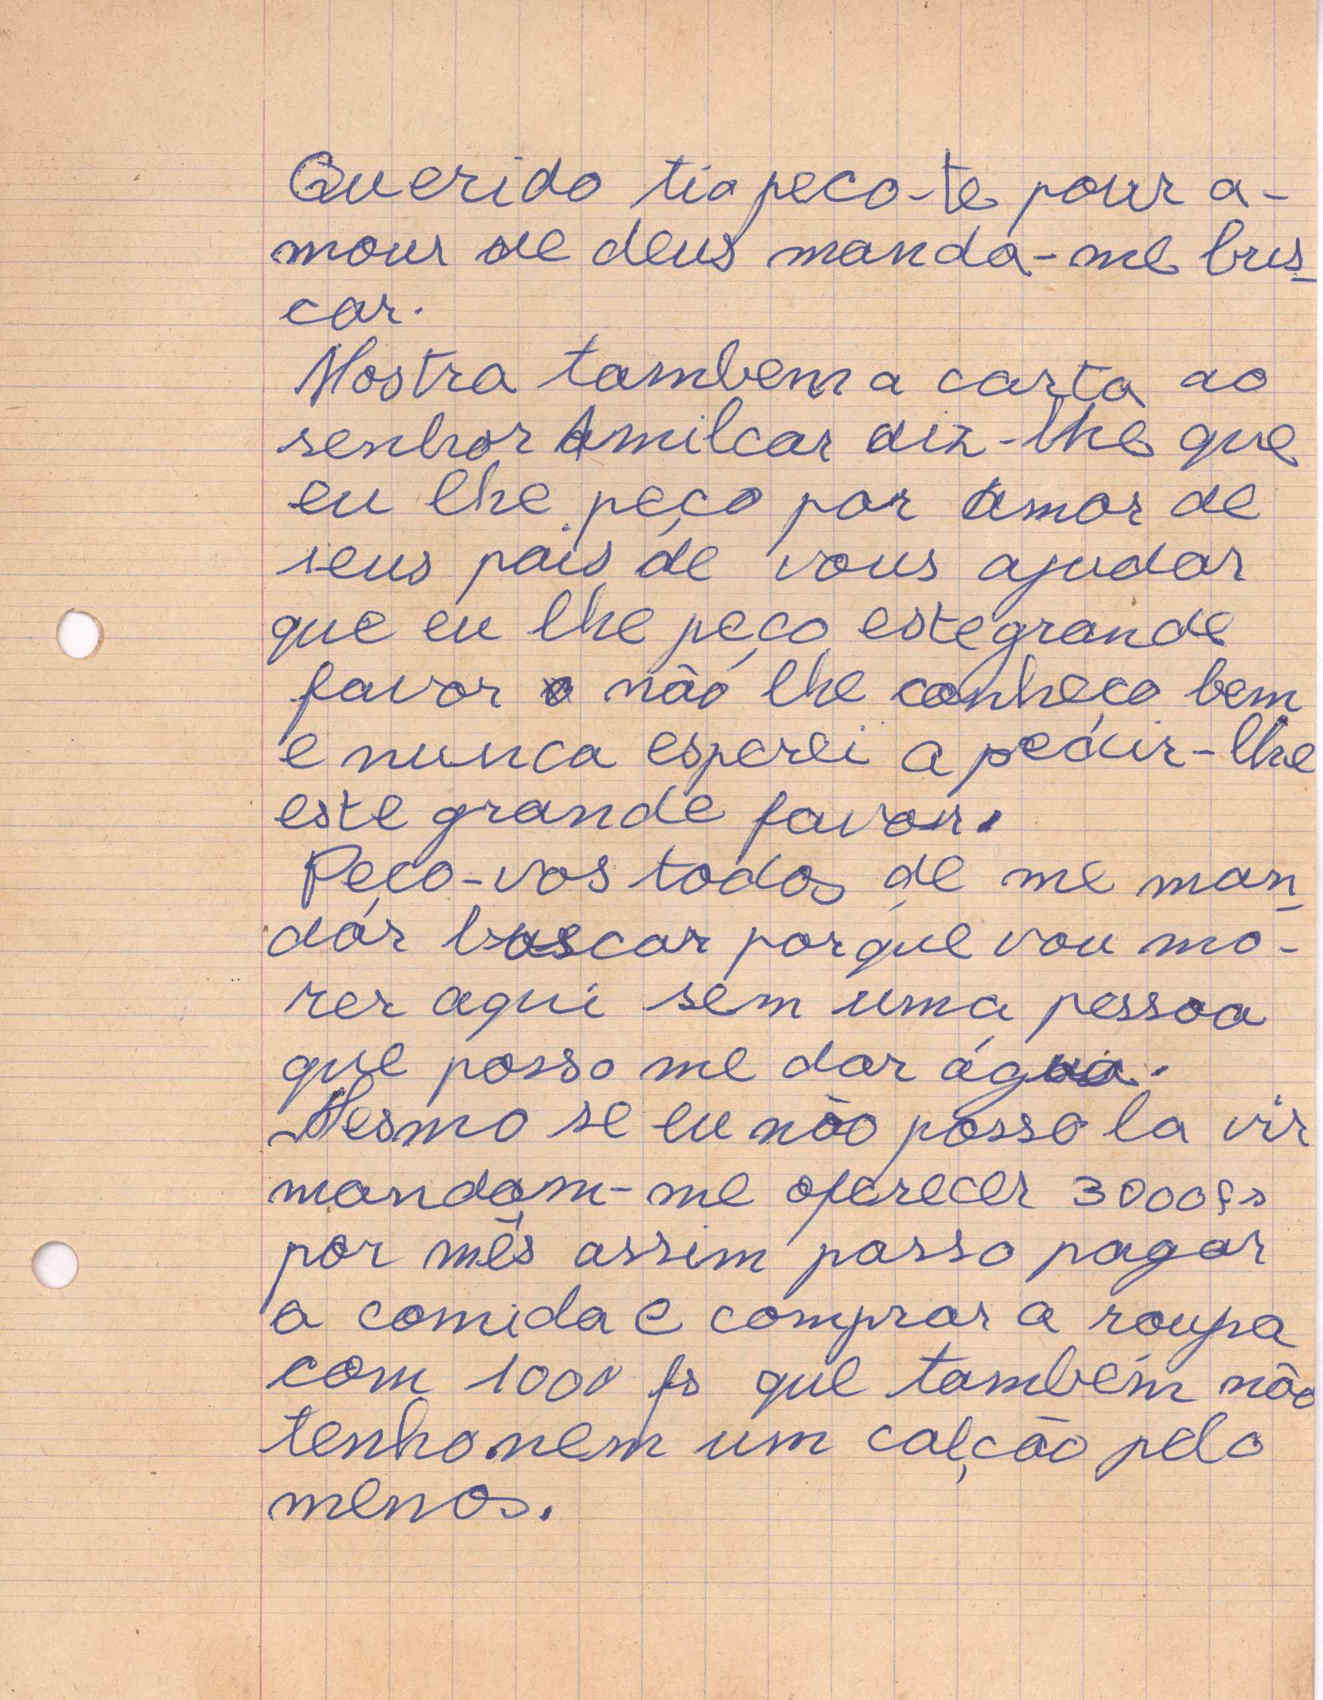 Querido tio peco-te pour a-
mour de deus manda-me bus-
car.
Mostra tambem a carta ao
senhor Amilcar diz-lhe que
eu lhe peço por amor de
seus pais de vous ajudar
que eu lhe peço este grande
favor e não lhe conheço bem
e nunca esperei a pedir-lhe
este grande favor.
Peço-vos todos de me man-
dár buscar porque vou mo-
rer aqui sem uma pessoa
que posso me dar água.
Mesmo se eu não posso la vir
mandam-me oferecer 3000 fs
por mês assim posso pagar
a comida e comprar a roupa
com 1000 fs que também não
tenho nem um calção pelo
menos.